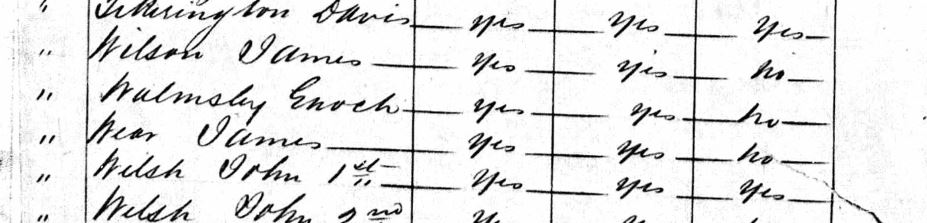 " Titherington Davis yes yes yes
" Wilson James yes yes no
" Walmsley Enoch yes yes no
" Wear James yes yes no
" Welsh John 1st yes yes yes
" Welsh John 2nd